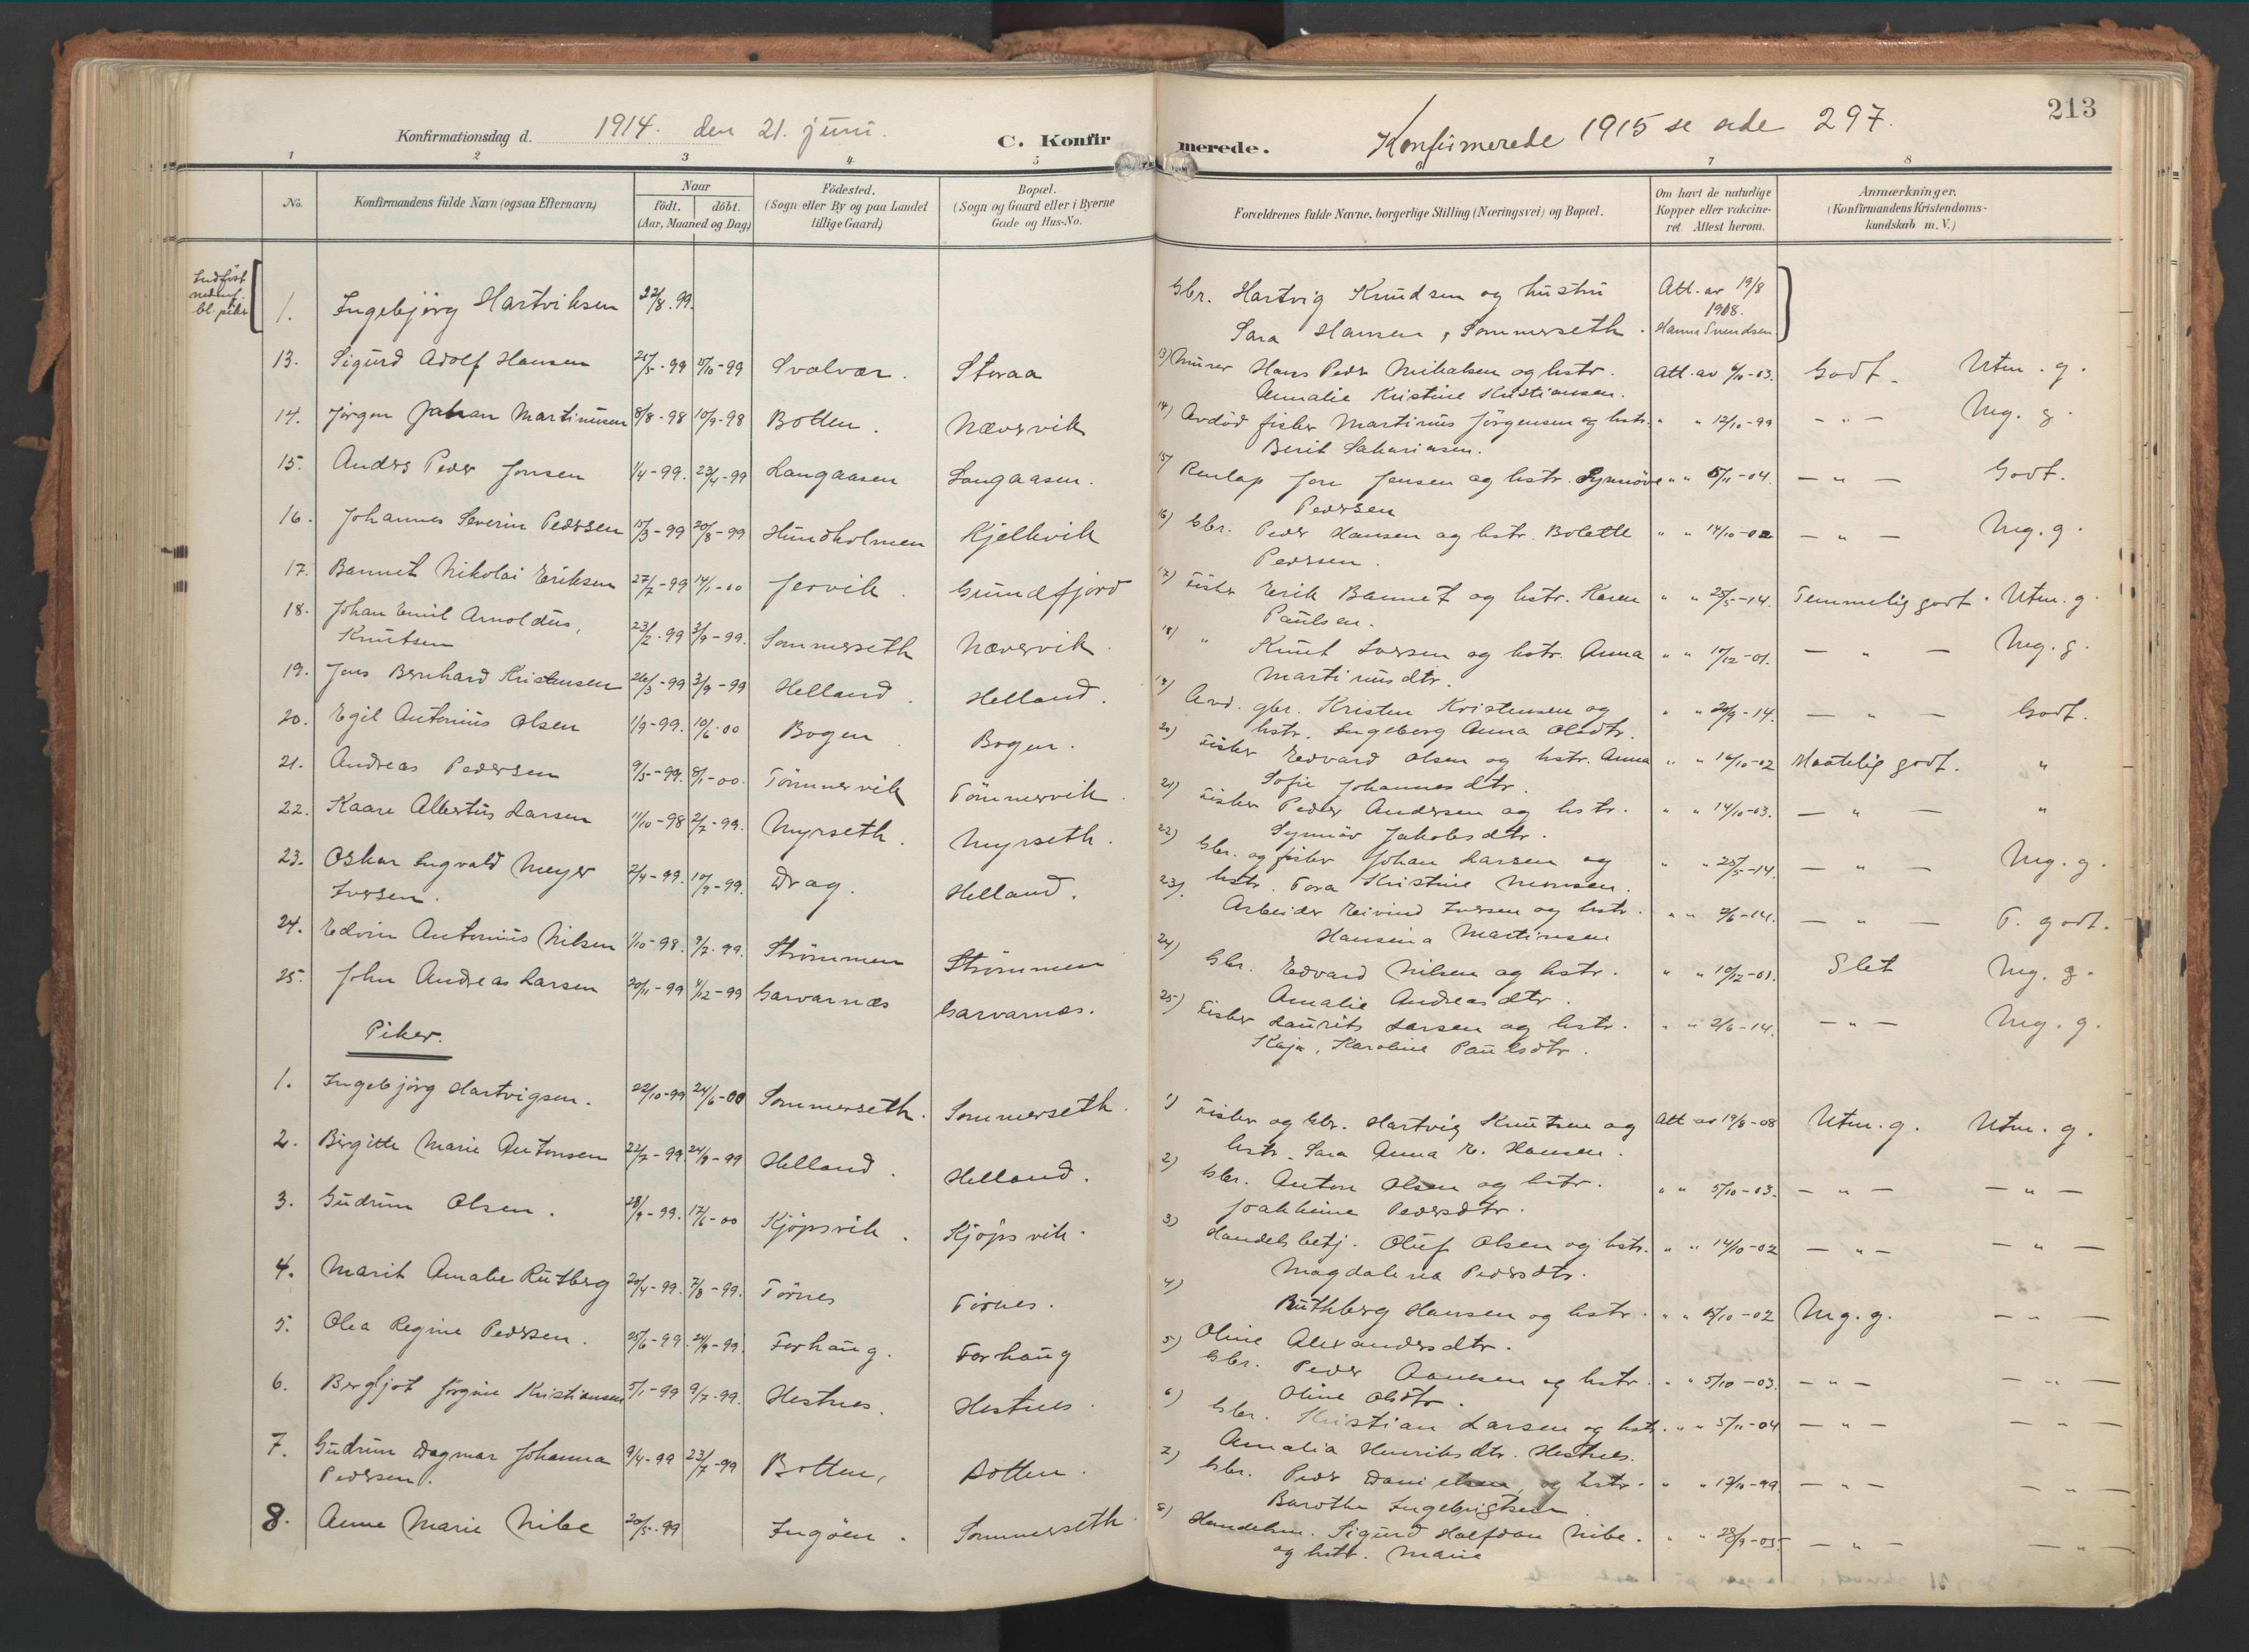 213
Konfirmationsdag d. 1914. den 21. juni.
C. Konfirmerede.
Konfirmerede 1915 se side 297.
1 2 3 4 5 6 7 8
No. | Konfirmandens fulde Navn (ogsaa Efternavn) | Naar födt. döbt. (Aar, Maaned og Dag) | Födested. (Sogn eller By og paa Landet tillige Gaard) | Bopæl. (Sogn og Gaard eller i Byerne Gade og Hus-No. | Forældrenes fulde Navne, borgerlige Stilling (Næringsvei) og Bopæl. | Om havt de naturlige Kopper eller vakcineret. Attest herom. | Anmærkninger. (Konfirmandens Kristendomskundskab m. V.)
Indført nedenf. bl. piker
1. Ingebjørg Hartviksen 22/8.99. Gbr. Hartvig Knudsen og hustru Att. av 19/8
Sara Hansen, Sommerseth. 1908. Hanna Svendsen
13. Sigurd Adolf Hansen 25/5-99 15/10-99 Svolvær. Storaa 13) Murer Hans Peder Mikalsen og hstr. Att. av 6/10-03. Godt. Utm. g.
Annalie Kristine Kristiansen.
14. Jørgen Johan Martinusen 8/8-98 10/9-98 Botten. Nævervik 14) Avdød fisker Martinus Jörgensen og hstr. " " 12/10-99 - " - Mg. g.
Berit Sakariasen.
15. Anders Peder Jonsen 1/4-99. 23/4-99 Langaasen Langaasen. 15) Renlap Jon Jonsen og hstr. Synnöve " " 5/11-04. - " - Godt.
Pedersen
16. Johannes Severin Pedersen 15/3-99 20/8-99 Hundholmen Kjelkvik 16) Gbr. Peder Hansen og hstr. Bolette " " 14/10-02 - " - Mg. g.
Pedersen.
17. Bannet Nikolai Eriksen 27/7-99 14/1-00 Jervik. Grundfjord 17) Fisker Erik Bannet og hstr. Karen " " 25/5-14. Temmelig godt. Utm. g.
Paulsen.
18. Johan Emil Arnoldus, Knutsen 23/2.99 3/9-99. Sommerseth Nævervik. 18) " Knut Iversen og hstr. Anna " " 17/12-01. - " - Mg. g.
Martinusdtr.
19. Jens Bernhard Kristensen 26/3-99 3/9-99 Helland. Helland. 19) Avd. gbr. Kristen Kristensen og " " 20/9-14. - " - Godt.
hstr. Ingeborg Anna Olsdtr.
20. Egil Antonius Olsen 1/9-99. 10/6.00 Bogen. Bogen. 20) Fisker Edvard Olsen og hstr. Anna " " 14/10-02 Maatelig godt. "
Sofie Johannesdtr.
21. Andreas Pedersen 9/5-99. 8/1-00. Tömmervik Tömmervik. 21) Fisker Peder Andersen og hstr. " " 14/10-03. - " - "
Synnöv Jakobsdtr.
22. Kaare Albertus Larsen 11/10-98 2/7-99. Myrseth. Myrseth. 22) Gbr. og fisker Johan Larsen og " " 25/5-14. - " - Mg. g.
hstr. Tora Kristine Monsen.
23. Oskar Ingvald Meyer Iversen. 2/4-99. 10/9-99. Drag. Helland. 23) Arbeider Eivind Iversen og hstr. " " 2/6-14. - " - T. godt.
Hansina Martinsen
24. Edvin Antonius Nilsen 1/10-98. 9/7.99. Strömmen Strömmen 24) Gbr. Edvard Nilsen og hstr. " " 10/12-01. Slet Mg. g.
Amalie Andreasdtr.
25. John Andreas Larsen 20/11-99 4/12-99 Garvarnæs Garvarnæs. 25) Fisker Laurits Larsen og hstr. " " 2/6-14. - " - Mg. g.
Kaja, Karoline Paulsdtr.
Piker.
1. Ingebjörg Hartvigsen. 22/10-99 24/6-00 Sommerseth. Sommerseth. 1) Fisker og Gbr. Hartvig Knutsen og Att av 19/8-08 Utm. g. Utm. g.
hstr. Sara Anna E. Hansen.
2. Birgitte Marie Antonsen 22/7-99. 24/9-99 Helland. Helland. 2) Gbr. Anton Olsen og hstr. " " 5/10-03. - " - - " -
Joakkime Pedersdtr.
3. Gudrun Olsen. 28/9-99. 17/6-00 Kjöpsvik. Kjöpsvik. 3) Handelsbetj. Oluf Olsen og hstr. " " 14/10-02 - " - - " -
Magdalena Pedersdtr.
4. Marit Amalie Rutberg 20/4-99. 7/8-99. Törnes Törnes. 4) Ruthberg Hansen og hstr. " " 15/10-02 Mg. g. - " -
Oline Alexandersdtr.
5. Olea Regine Pedersen. 25/6-99. 24/9-99. Forhaug. Forhaug 5) Gbr. Peder Paulsen og hstr. " " 5/10-03. - " - - " -
Oline Olsdtr.
6. Bergljot Jörgine Kristiansen 5/1-99 9/7-99. Hestnes. Hestnes. 6) Gbr. Kristian Larsen og hstr. " " 5/11-04 - " - - " -
Amalia Henriksdtr. Hestnes.
7. Gudrun Dagmar Johanna Pedersen. 9/4-99 23/7-99 Botten, Botten. 7) Gbr. Peder Danielsen og hstr. " " 17/10-99 - " - - " -
Barothe Ingebrigtsen
8. Anne Marie Nibe 20/5.99 Ingöen. Sommerseth. 8) Handelsm. Sigurd Halfdan Nibe. " " 28/9-05. - " - - " -
og hstr. Marie